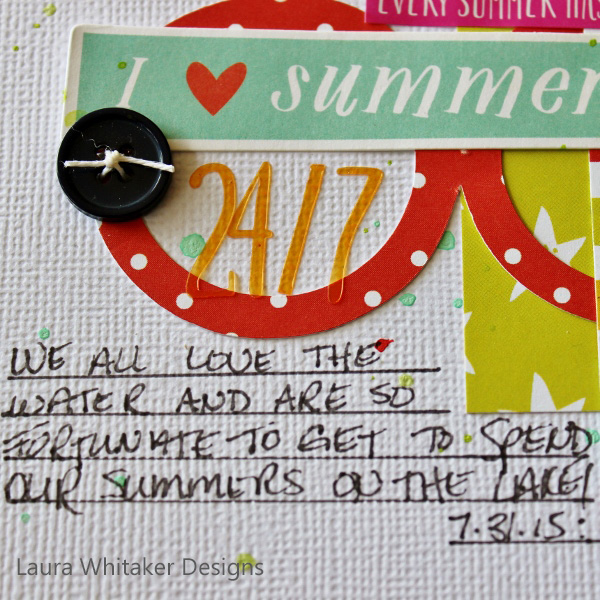 EVERY SUMMER HAS
I ♥ summer
24/7
WE ALL LOVE THE
WATER AND ARE SO
FORTUNATE TO GET TO SPEND
OUR SUMMERS ON THE LAKE!
7.31.15:
Laura Whitaker Designs